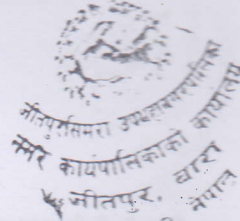 जीतपुरसिमरा उपमहानगरपालिका
नगर कार्यपालिकाको कार्यालय
जीतपुर, बारा
नेपाल